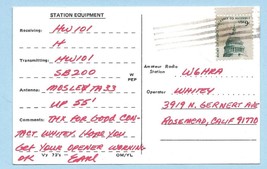 STATION EQUIPMENT
Receiving: HW101
Transmitting: HW101
SB200
W PEP
Antenna: MOSLEY TA33
UP 55'
Comments: TNX FOR GOOD CON-
TACT WHITEY. HOPE YOU
GET YOUR OPENER WORKING
Vy 73's EARL OM/YL
Amateur Radio
Station W6HRA
Operator WHITEY
3919 N. GERNERT AVE
ROSEMEAD, CALIF 91770